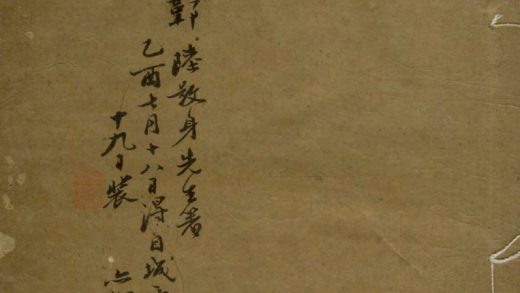 鄞陸敬身先生著
乙酉七月十八日得自城
十九日裝